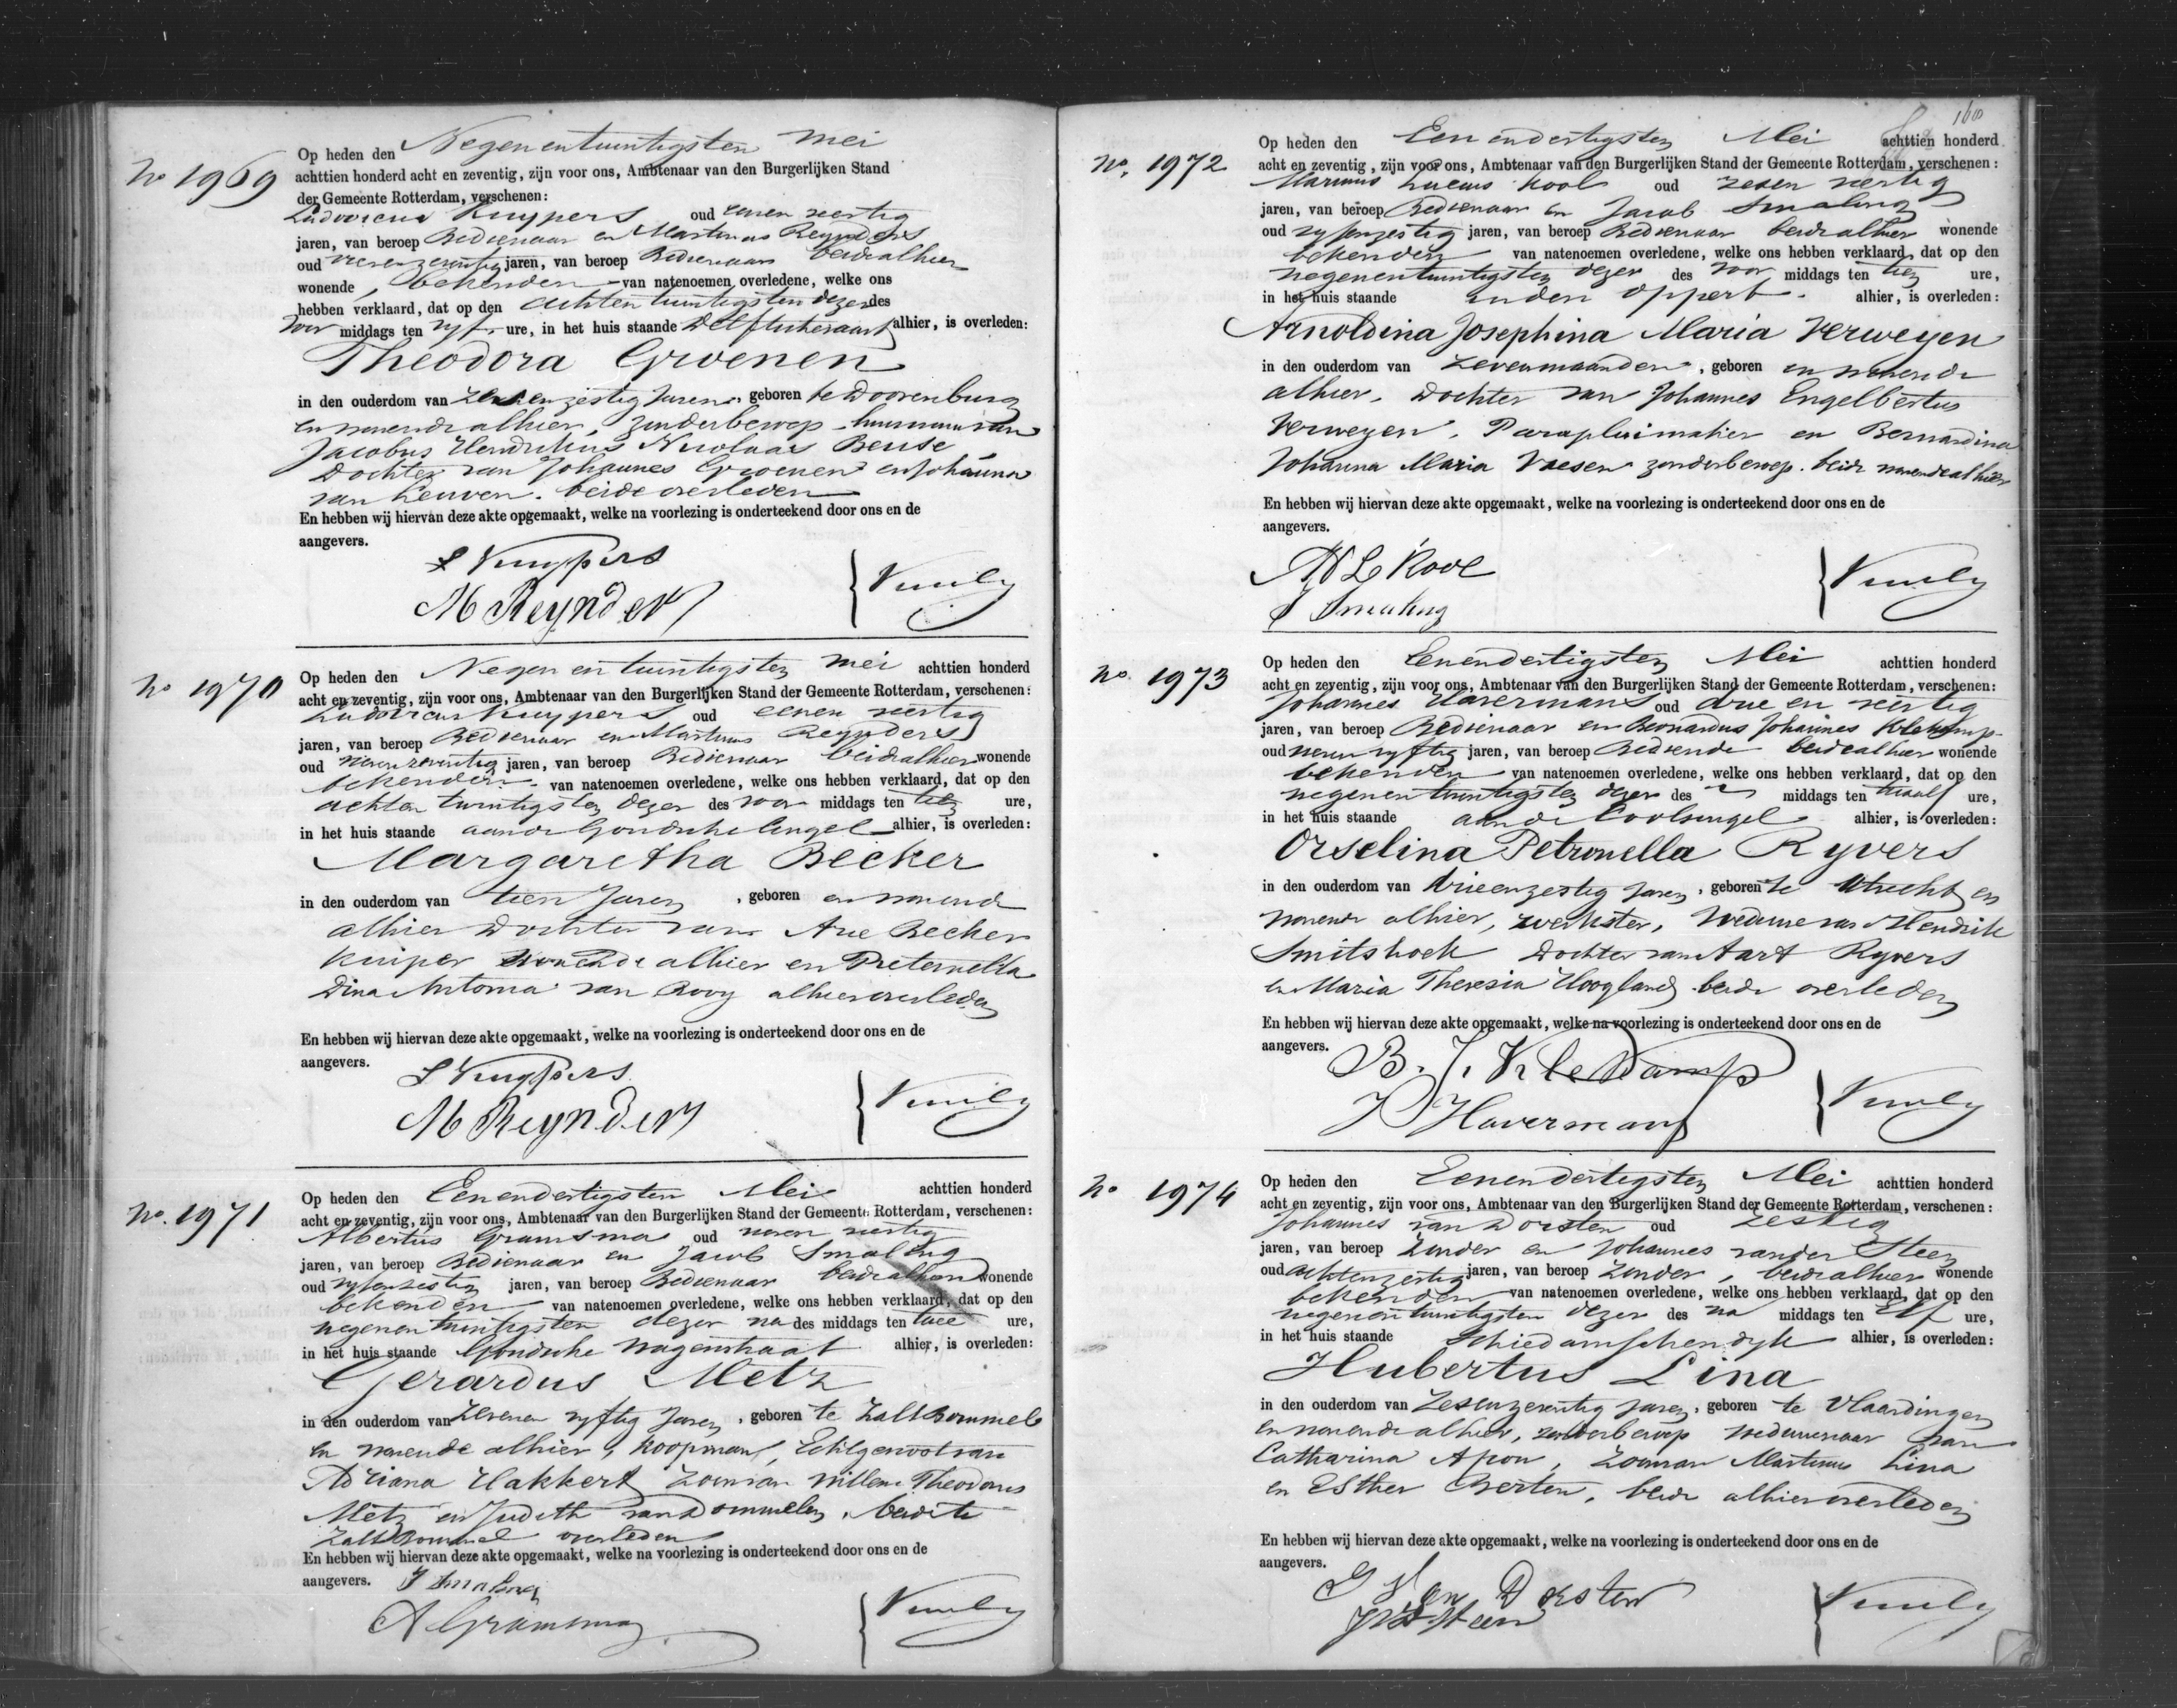 No 1969
Op heden den Negenentwintigsten Mei
achttien honderd acht en zeventig, zijn voor ons, Ambtenaar van den Burgerlijken Stand
der Gemeente Rotterdam, verschenen:
Ludovicus Kuypers oud eenen veertig
jaren, van beroep Bedienaar en Martinus Reynders
oud jaren, van beroep Bedienaar beide alhier
wonende, bekenden van natenoemen overledene, welke ons
hebben verklaard, dat op den achtentwintigsten dezer des
voor middags ten vyf ure, in het huis staande Delftschevaart alhier, is overleden:
Theodora Groenen
in den ouderdom van zesenzestig Jaren, geboren te Doorenburg
en wonende alhier, zonder beroep, huisvrouw van
Jacobus Hendrikus Nicolaas Beuse,
Dochter van Johannes Groenen en Johanna
van Leuven. beide overleden
En hebben wij hiervan deze akte opgemaakt, welke na voorlezing is onderteekend door ons en de
aangevers.
L Kuypers
M Reynders
No 1970
Op heden den Negen en twintigsten Mei achttien honderd
acht en zeventig, zijn voor ons, Ambtenaar van den Burgerlijken Stand der Gemeente Rotterdam, verschenen:
Ludovicus Kuypers oud eenen veertig
jaren, van beroep Bedienaar en Martinus Reynders
oud jaren, van beroep Bedienaar beide alhier wonende
bekenden van natenoemen overledene, welke ons hebben verklaard, dat op den
achten twintigsten dezer des voor middags ten tien ure,
in het huis staande aan de Goudsche Singel alhier, is overleden:
Margaretha Becker
in den ouderdom van tien Jaren, geboren en wonende
alhier Dochter van Arie Becker
Kuiper wonende alhier en Pieternella
Dina Antonia van Rooy alhier overleden
En hebben wij hiervan deze akte opgemaakt, welke na voorlezing is onderteekend door ons en de
aangevers.
L Kuypers
M Reynders
No. 1971
Op heden den Eenendertigsten Mei achttien honderd
acht en zeventig, zijn voor ons, Ambtenaar van den Burgerlijken Stand der Gemeente Rotterdam, verschenen:
Albertus Gramsma oud veertig
jaren, van beroep Bedienaar en Jacob Smaling
oud vyfenzestig jaren, van beroep Bedienaar beide alhier wonende
bekenden van natenoemen overledene, welke ons hebben verklaard, dat op den
negenentwintigsten dezer na des middags ten twee ure,
in het huis staande Goudsche Wagenstraat alhier, is overleden:
Gerardus Metz
in den ouderdom van zevenen vyftig Jaren, geboren te Zaltbommel
en wonende alhier, Koopman, Echtgenoot van
Adriana Hakkert Zoon van Willem Theodorus
Metz en Judith van Dommelen, beide te
Zaltbommel overleden
En hebben wij hiervan deze akte opgemaakt, welke na voorlezing is onderteekend door ons en de
aangevers.
J Smaling
A Gramsma
160
No. 1972
Op heden den Eenendertigsten Mei achttien honderd
acht en zeventig, zijn voor ons, Ambtenaar van den Burgerlijken Stand der Gemeente Rotterdam, verschenen:
Marinus Lucas Kool oud zesen veertig
jaren, van beroep Bedienaar en Jacob Smaling
oud vyfenzestig jaren, van beroep Bedienaar beide alhier wonende
bekenden van natenoemen overledene, welke ons hebben verklaard, dat op den
negenentwintigsten dezer des voor middags ten tien ure,
in het huis staande in den Oppert alhier, is overleden:
Arnoldina Josephina Maria Verweyen
in den ouderdom van zevenmaanden, geboren en wonende
alhier, Dochter van Johannes Engelbertus
Verweyen, Parapluimaker en Bernardina
Johanna Maria Vaesen zonder beroep. beide wonende alhier
En hebben wij hiervan deze akte opgemaakt, welke na voorlezing is onderteekend door ons en de
aangevers.
M L Kool
J Smaling
No. 1973
Op heden den Eenendertigsten Mei achttien honderd
acht en zeventig, zijn voor ons, Ambtenaar van den Burgerlijken Stand der Gemeente Rotterdam, verschenen:
Johannes Havermans oud drie en veertig
jaren, van beroep Bedienaar en Bernardus Johannes Klekamp
oud vyftig jaren, van beroep Bediende beide alhier wonende
bekenden van natenoemen overledene, welke ons hebben verklaard, dat op den
negenentwintigsten dezer des middags ten twaalf ure,
in het huis staande aan de Coolsingel alhier, is overleden:
Orselina Petronella Ryvers
in den ouderdom van drieenzestig Jaren, geboren te Utrecht en
wonende alhier, werkster, Weduwe van Hendrik
Smitshoek Dochter van Aart Ryvers
en Maria Theresia Hoogland beide overleden
En hebben wij hiervan deze akte opgemaakt, welke na voorlezing is onderteekend door ons en de
aangevers.
B. J. Klekamp
J Havermans
No 1974
Op heden den Eenendertigsten Mei achttien honderd
acht en zeventig, zijn voor ons, Ambtenaar van den Burgerlijken Stand der Gemeente Rotterdam, verschenen:
Johannes van Dorsten oud zestig
jaren, van beroep zonder en Johannes van der Steen
oud achtenzestig jaren, van beroep zonder, beide alhier wonende
bekenden van natenoemen overledene, welke ons hebben verklaard, dat op den
negenentwintigsten dezer des na middags ten Elf ure,
in het huis staande Schiedamschendyk alhier, is overleden:
Hubertus Lina
in den ouderdom van zesenzeventig Jaren, geboren te Vlaardingen
en wonende alhier, zonder beroep weduwenaar van
Catharina Apon, Zoon van Martinus Lina
en Esther Gerten, beide alhier overleden
En hebben wij hiervan deze akte opgemaakt, welke na voorlezing is onderteekend door ons en de
aangevers.
J Van Dorsten